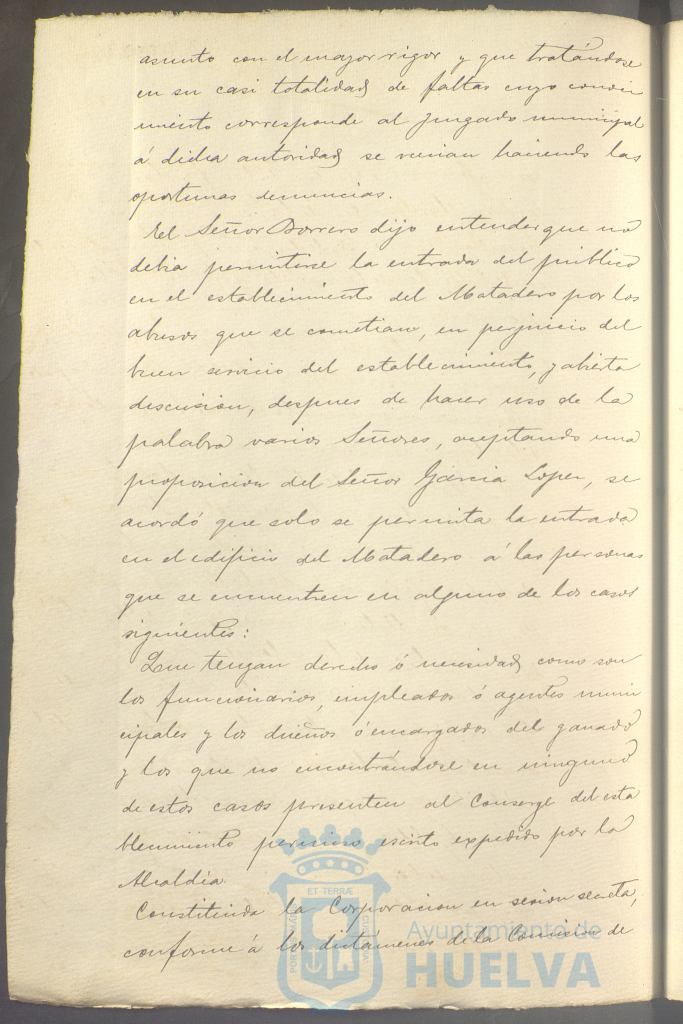 asunto con el mayor rigor y que tratándose
en su casi totalidad de faltas cuyo conoci
miento corresponde al Juzgado municipal
á dicha autoridad se venian haciendo las
oportunas denuncias.
El Señor Borrero dijo entender que no
debia permitirse la entrada del público
en el establecimiento del Matadero por los
abusos que se cometian, en perjuicio del
buen servicio del establecimiento, y abierta
discusion, despues de hacer uso de la
palabra varios Señores, aceptando una
proposicion del Señor Garcia Lopez, se
acordó que solo se permita la entrada
en el edificio del Matadero á las personas
que se encuentren en alguno de los casos
siguientes:
Que tengan derecho ó necesidad como son
los funcionarios, empleados ó agentes muni
cipales y los dueños ó encargados del ganado
y los que no encontrándose en ninguno
de estos casos presenten al Conserge del esta
blecimiento permiso escrito expedido por la
Alcaldia.
Constituida la Corporacion en sesion secreta,
conforme á los dictámenes de la Comision de
ET TERRÆ
Ayuntamiento de
HUELVA